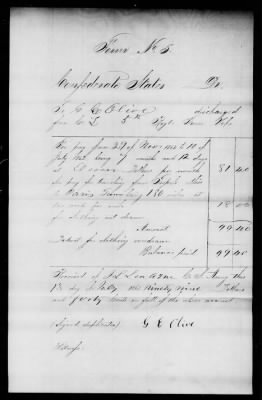 Form No 5.
Confederate States Dr.
To G E Olive discharged
from Co I 5th Regt Tenn Vols
For pay from 27 of Nov 1861 to 10 of
July 1862 being 7 months and 12 days
at Eleven Dollars per month 81 40
for pay for traveling from Tupelo Miss
to Paris Tenn being 180 miles at
ten cents for mile 18 00
for clothing not drawn
Amount 99 40
Deduct for clothing overdrawn
Balance paid 99 40
Received of C S Army this
day of July 1862 ninety nine Dollars
and forty cents in full of the above account
(Signed duplicates) G E Olive
Witness